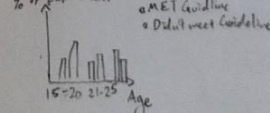 %
• MET Guidline
• Didn't meet Guideline
15-20 21-25 Age